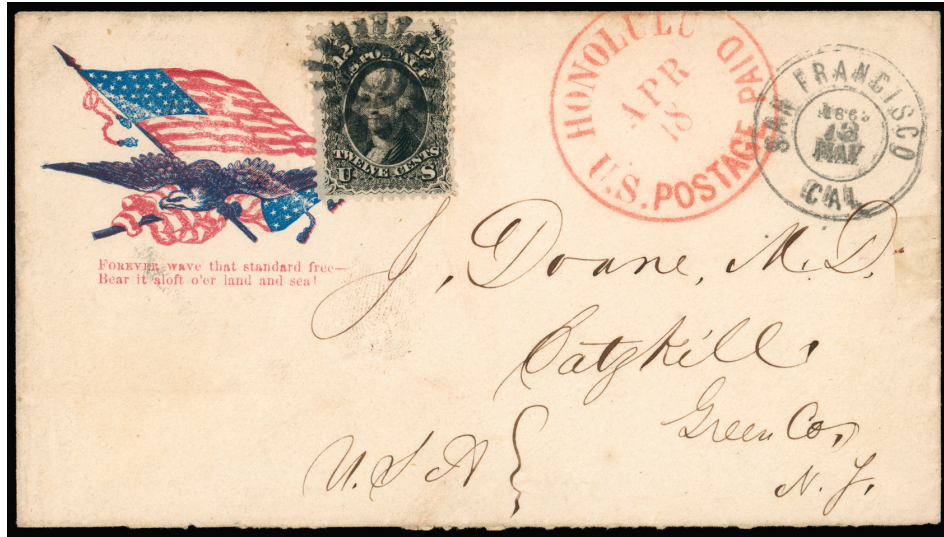 12 12
U.S. POSTAGE
TWELVE CENTS
U S
HONOLULU
APR
18
U.S. POSTAGE PAID
SAN FRANCISCO
13
MAY
CAL
FOREVER wave that standard free—
Bear it aloft o'er land and sea!
J. Doane, M.D.
Catskill,
Green Co,
U.S.A
N.Y.